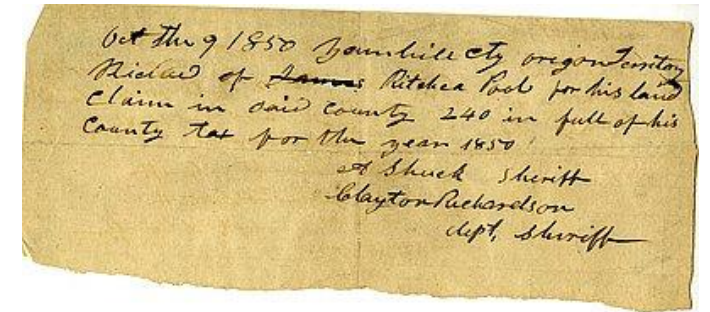 Oct the 9 1850 Yamhill cty oregon Territory
Recived of James Ritchea Pool for his land
Claim in said county 240 in full of his
County tax for the year 1850
A Shuck Sheriff
Clayton Richardson
dept, Sheriff